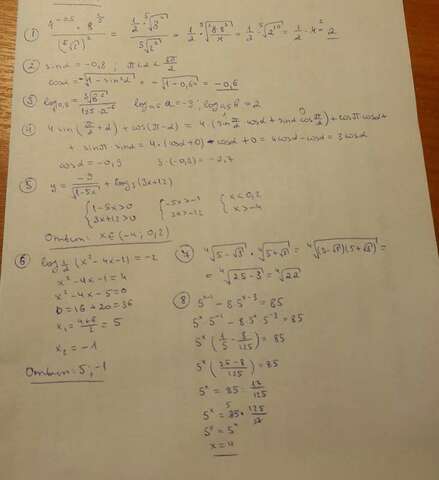 ① 4^(-0,5) · 8^(2/3) / (⁵√2)² = 1/2 · = 1/2 · = 1/2 · ⁵√2¹⁰ = 1/2 · 4 = 2
② sin α = -0,8 ; π < α < 3π/2
cos α = -√(1 - sin² α) = -√(1 - 0,64) = -0,6
③ log₀,₅ a = -3; log₀,₅ b = 2
④ 4 sin (π/2 + α) + cos(π - α) = 4 · (sin π/2 cos α + sin α cos π/2) + cos π cos α +
+ sin π · sin α = 4 · (cos α + 0) - cos α + 0 = 4 cos α - cos α = 3 cos α
cos α = -0,9 3 · (-0,9) = -2,7
⑤ y = -9/√(1-5x) + log₃ (3x+12)
{1-5x>0 {-5x>-1 {x<0,2
{3x+12>0 {3x>-12 {x>-4
Ответ: x ∈ (-4; 0,2)
⑥ log₁/₂ (x² - 4x - 1) = -2
x² - 4x - 1 = 4
x² - 4x - 5 = 0
D = 16 + 20 = 36
x₁ = (4+6)/2 = 5
x₂ = -1
Ответ: 5; -1
⑦ ⁴√(5-√3) · ⁴√(5+√3) = ⁴√((5-√3)(5+√3)) =
= ⁴√(25-3) = ⁴√22
⑧ 5^(x-1) - 8·5^(x-3) = 85
5^x · 5^(-1) - 8·5^x · 5^(-3) = 85
5^x (1/5 - 8/125) = 85
5^x ((25-8)/125) = 85
5^x = 85 : 17/125
5^x = 85 · 125/17
5^x = 5⁴
x = 4